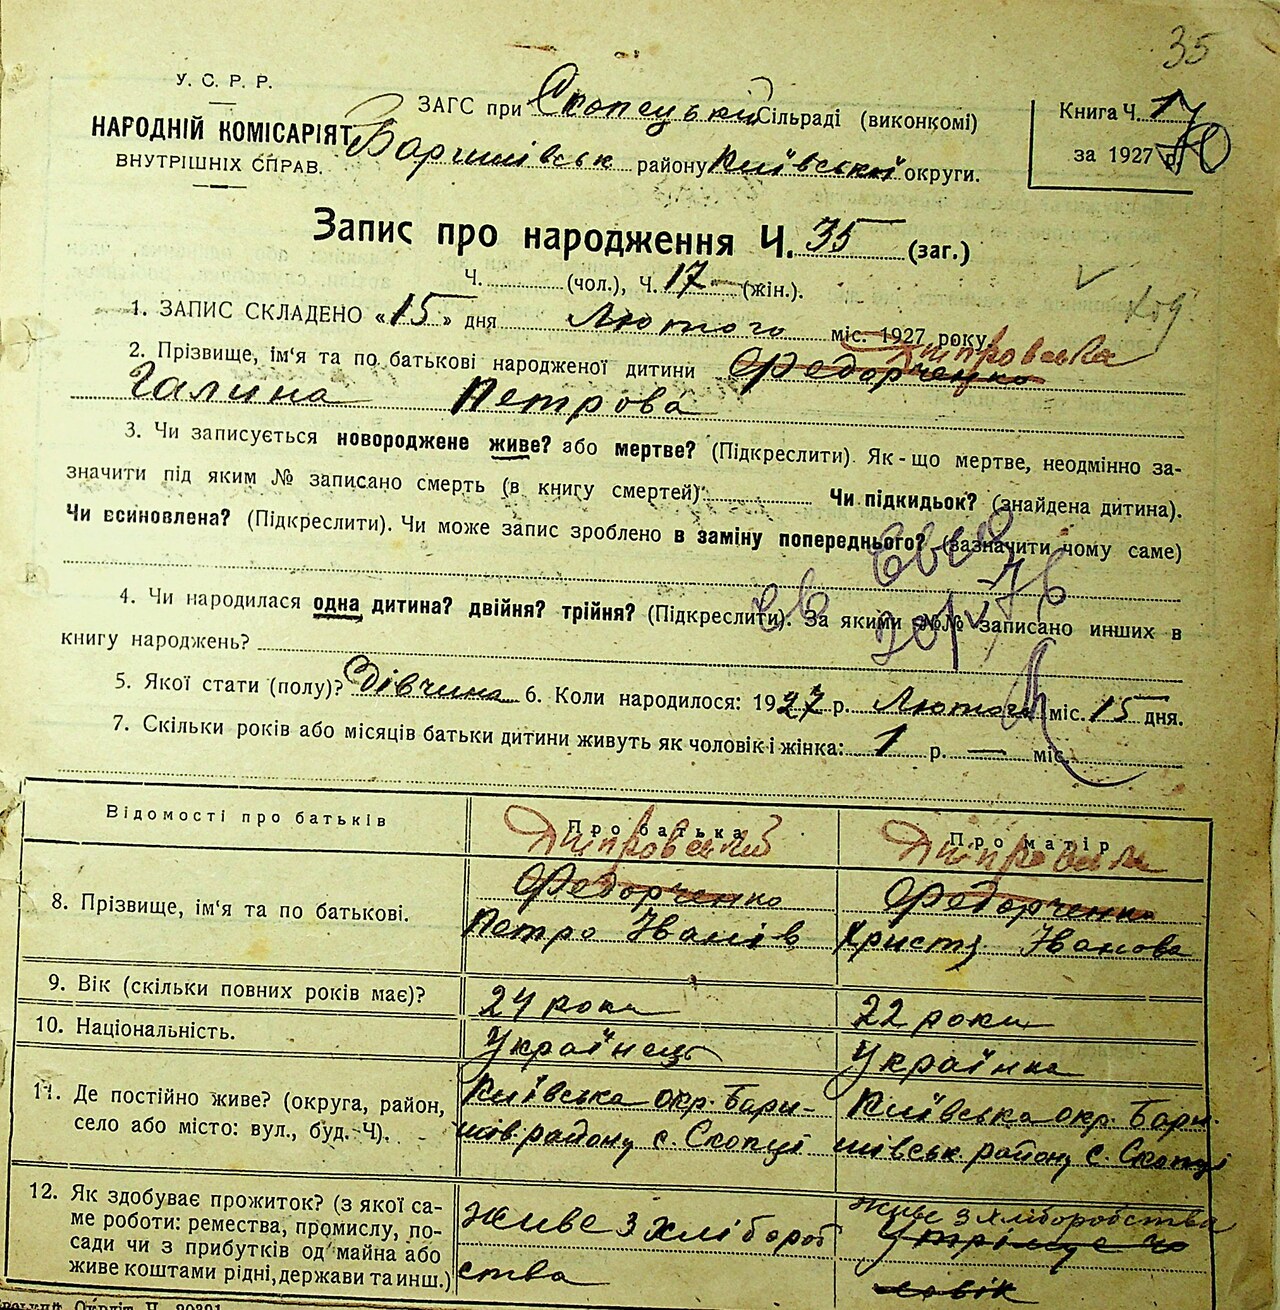 35
У. С. Р. Р.
НАРОДНІЙ КОМІСАРІЯТ
ВНУТРІШНІХ СПРАВ.
ЗАГС при Скопецькій Сільраді (виконкомі)
Баришівськ району Київської округи.
Книга Ч. 17
за 1927 р.
Запис про народження Ч. 35 (заг.)
Ч. (чол.), Ч. 17 — (жін.).
1. ЗАПИС СКЛАДЕНО «15» дня Лютого міс. 1927 року.
Дніпровська
2. Прізвище, ім'я та по батькові народженої дитини Федорченко
Галина Петрова
3. Чи записується новороджене живе? або мертве? (Підкреслити). Як-що мертве, неодмінно за-
значити під яким № записано смерть (в книгу смертей) Чи підкидьок? (знайдена дитина).
Чи всиновлена? (Підкреслити). Чи може запис зроблено в заміну попереднього? (зазначити чому саме)
4. Чи народилася одна дитина? двійня? трійня? (Підкреслити). За якими №№ записано инших в
книгу народжень?
5. Якої стати (полу)? Дівчина 6. Коли народилося: 1927 р. Лютого міс. 15 дня.
7. Скільки років або місяців батьки дитини живуть як чоловік і жінка: 1 р. — міс.
Відомості про батьків Про батька Про матір
Дніпровський Дніпровська
8. Прізвище, ім'я та по батькові. Федорченко Федорченко
Петро Іванів Христя Іванова
9. Вік (скільки повних років має)? 24 роки 22 роки
10. Національність. Українець Українка
11. Де постійно живе? (округа, район, Київська окр. Бари- Київська окр. Бари-
село або місто: вул., буд. Ч). шів. району с. Скопці шівськ району с. Скопці
12. Як здобуває прожиток? (з якої са- живе з хліборобства
ме роботи: ремества, промислу, по- живе з хлібороб
сади чи з прибутків од майна або
живе коштами рідні, держави та инш.) ства чоловік